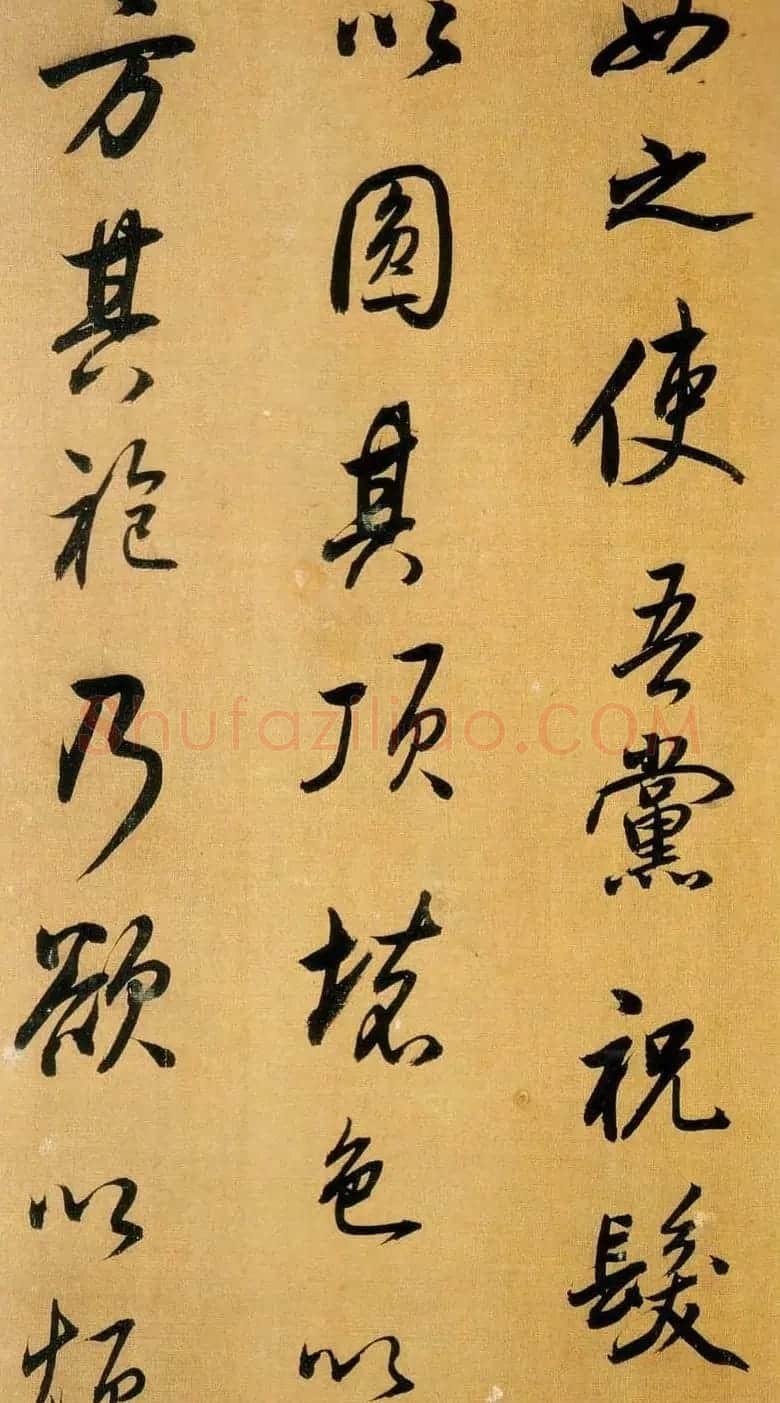 之使吾黨祝髮
以圓其頂壞色以
方其袍乃欲以煩
Shufaziliao.COM